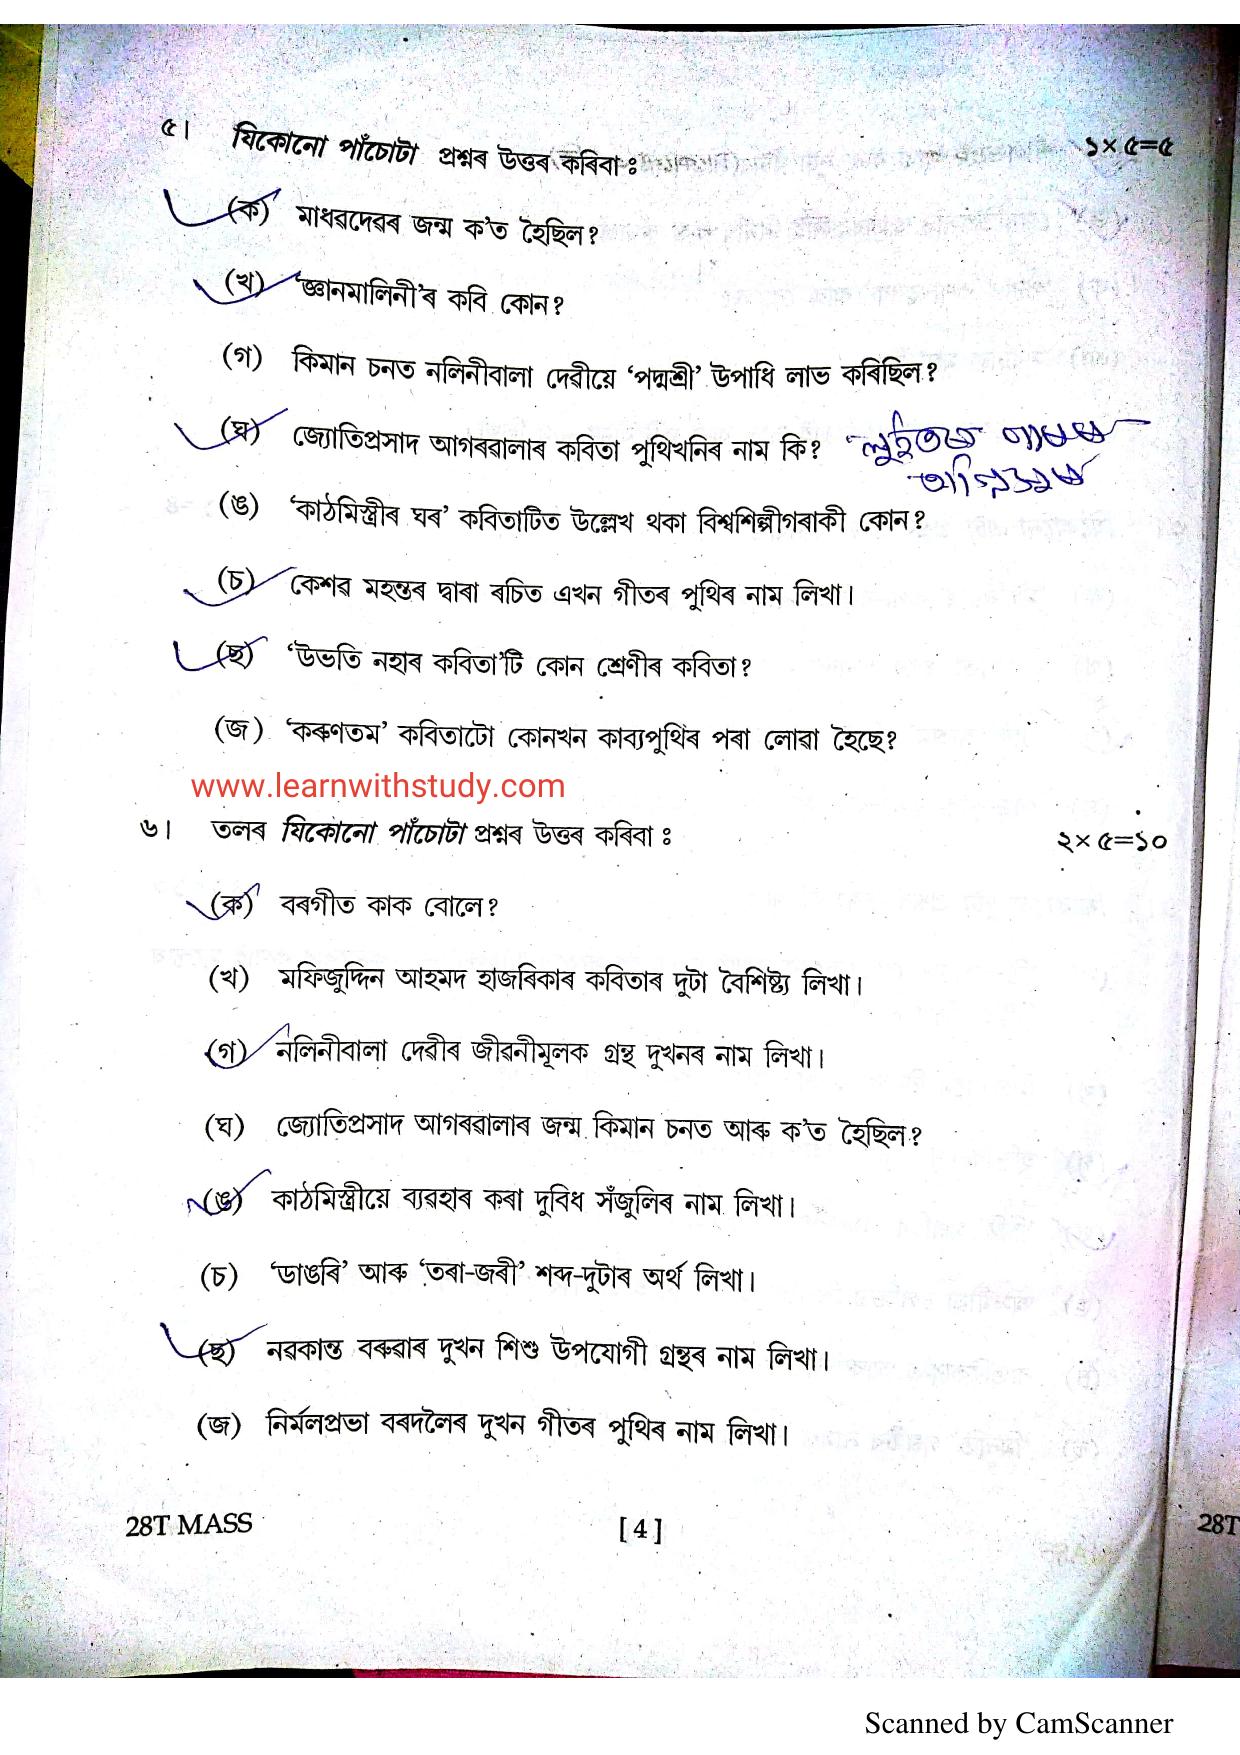 ৫। যিকোনো পাঁচোটা প্ৰশ্নৰ উত্তৰ কৰিবা ঃ ১×৫=৫
(ক) মাধৱদেৱৰ জন্ম ক'ত হৈছিল?
(খ) 'জ্ঞানমালিনী'ৰ কবি কোন?
(গ) কিমান চনত নলিনীবালা দেৱীয়ে 'পদ্মশ্ৰী' উপাধি লাভ কৰিছিল?
(ঘ) জ্যোতিপ্ৰসাদ আগৰৱালাৰ কবিতা পুথিখনিৰ নাম কি?
(ঙ) 'কাঠমিস্ত্ৰীৰ ঘৰ' কবিতাটিত উল্লেখ থকা বিশ্বশিল্পীগৰাকী কোন?
(চ) কেশৱ মহন্তৰ দ্বাৰা ৰচিত এখন গীতৰ পুথিৰ নাম লিখা।
(ছ) 'উভতি নহাৰ কবিতা'টি কোন শ্ৰেণীৰ কবিতা?
(জ) 'কৰুণতম' কবিতাটো কোনখন কাব্যপুথিৰ পৰা লোৱা হৈছে?
www.learnwithstudy.com
৬। তলৰ যিকোনো পাঁচোটা প্ৰশ্নৰ উত্তৰ কৰিবা ঃ ২×৫=১০
(ক) বৰগীত কাক বোলে?
(খ) মফিজুদ্দিন আহমদ হাজৰিকাৰ কবিতাৰ দুটা বৈশিষ্ট্য লিখা।
(গ) নলিনীবালা দেৱীৰ জীৱনীমূলক গ্ৰন্থ দুখনৰ নাম লিখা।
(ঘ) জ্যোতিপ্ৰসাদ আগৰৱালাৰ জন্ম কিমান চনত আৰু ক'ত হৈছিল?
(ঙ) কাঠমিস্ত্ৰীয়ে ব্যৱহাৰ কৰা দুবিধ সঁজুলিৰ নাম লিখা।
(চ) 'ডাঙৰি' আৰু 'তৰা-জৰী' শব্দ-দুটাৰ অৰ্থ লিখা।
(ছ) নৱকান্ত বৰুৱাৰ দুখন শিশু উপযোগী গ্ৰন্থৰ নাম লিখা।
(জ) নিৰ্মলপ্ৰভা বৰদলৈৰ দুখন গীতৰ পুথিৰ নাম লিখা।
28T MASS [ 4 ] 28T
Scanned by CamScanner